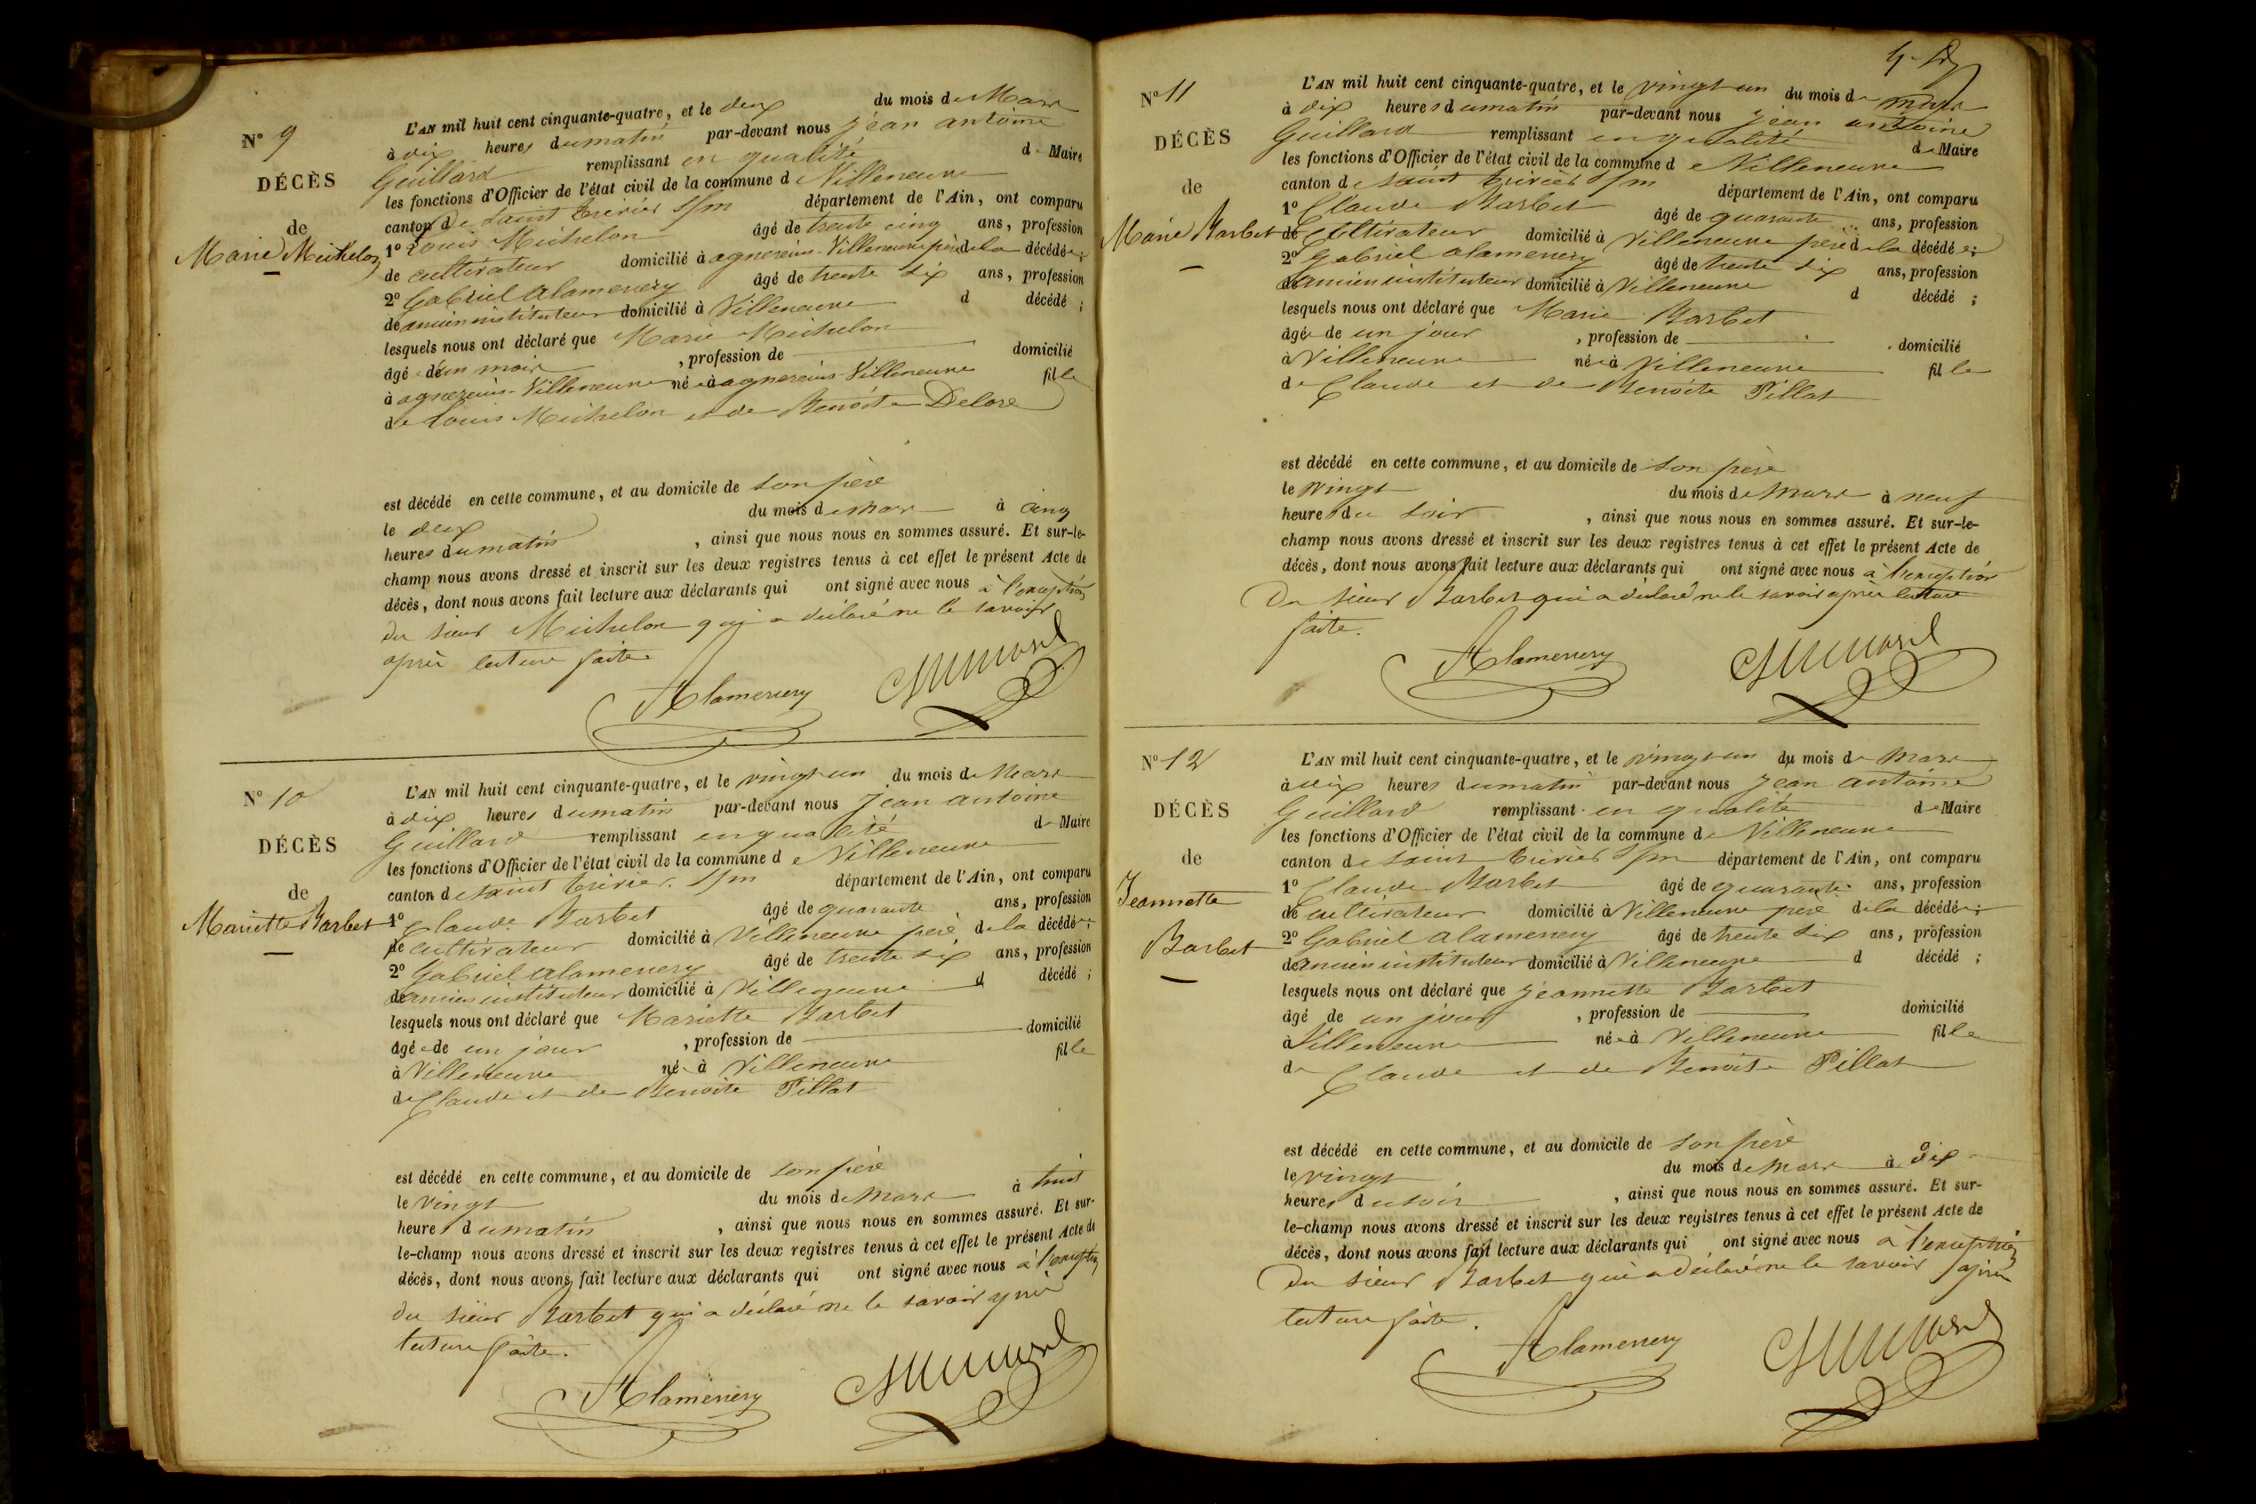 N° 9
DÉCÈS
de
Marie Michelon
L'AN mil huit cent cinquante-quatre, et le deux du mois de Mars
à dix heures du matin par-devant nous jean antoine
Guillard remplissant en qualité de Maire
les fonctions d'Officier de l'état civil de la commune de Villeneuve
canton de Saint trivier s/m département de l'Ain, ont comparu
1° Louis Michelon âgé de trente cinq ans, profession
de cultivateur domicilié à agnereins-Villeneuve père de la décédée;
2° Gabriel alamercery âgé de trente six ans, profession
de ancien instituteur domicilié à Villeneuve d décédé ;
lesquels nous ont déclaré que Marie Michelon
âgé de un mois , profession de domicilié
à agnereins-Villeneuve née à agnereins-Villeneuve fille
de Louis Michelon et de Benoite Delore
est décédé en cette commune, et au domicile de son père
le deux du mois de mars à cinq
heures du matin , ainsi que nous nous en sommes assuré. Et sur-le-
champ nous avons dressé et inscrit sur les deux registres tenus à cet effet le présent Acte de
décès, dont nous avons fait lecture aux déclarants qui ont signé avec nous à l'exception
du sieur Michelon qui a déclaré ne le savoir
après lecture faite
Alamercery
N° 10
DÉCÈS
de
Mariette Barbet
L'AN mil huit cent cinquante-quatre, et le vingt un du mois de Mars
à dix heures du matin par-devant nous jean antoine
Guillard remplissant en qualité de Maire
les fonctions d'Officier de l'état civil de la commune de Villeneuve
canton de saint trivier s/m département de l'Ain, ont comparu
1° Claude Barbet âgé de quarante ans, profession
de cultivateur domicilié à Villeneuve père de la décédée;
2° Gabriel alamercery âgé de trente six ans, profession
de ancien instituteur domicilié à Villeneuve d décédé ;
lesquels nous ont déclaré que Mariette Barbet
âgée de un jour , profession de domicilié
à Villeneuve née à Villeneuve fille
de Claude et de Benoite Pillat
est décédé en cette commune, et au domicile de son père
le vingt du mois de mars à huit
heures du matin , ainsi que nous nous en sommes assuré. Et sur-
le-champ nous avons dressé et inscrit sur les deux registres tenus à cet effet le présent Acte de
décès, dont nous avons fait lecture aux déclarants qui ont signé avec nous à l'exception
du sieur Barbet qui a déclaré ne le savoir après
lecture faite.
Alamercery
N° 11
DÉCÈS
de
Marie Barbet
L'AN mil huit cent cinquante-quatre, et le vingt un du mois de mars
à dix heures du matin par-devant nous jean antoine
Guillard remplissant en qualité de Maire
les fonctions d'Officier de l'état civil de la commune de Villeneuve
canton de saint trivier s/m département de l'Ain, ont comparu
1° Claude Barbet âgé de quarante ans, profession
de Cultivateur domicilié à Villeneuve père de la décédée;
2° Gabriel alamercery âgé de trente six ans, profession
de ancien instituteur domicilié à Villeneuve d décédé ;
lesquels nous ont déclaré que Marie Barbet
âgée de un jour , profession de domicilié
à Villeneuve née à Villeneuve fille
de Claude et de Benoite Pillat
est décédé en cette commune, et au domicile de son père
le vingt du mois de mars à neuf
heures du soir , ainsi que nous nous en sommes assuré. Et sur-le-
champ nous avons dressé et inscrit sur les deux registres tenus à cet effet le présent Acte de
décès, dont nous avons fait lecture aux déclarants qui ont signé avec nous à l'exception
Du sieur Barbet qui a déclaré ne le savoir après lecture
faite.
Alamercery
N° 12
DÉCÈS
de
Jeannette
Barbet
L'AN mil huit cent cinquante-quatre, et le vingt un du mois de Mars
à dix heures du matin par-devant nous jean antoine
Guillard remplissant en qualité de Maire
les fonctions d'Officier de l'état civil de la commune de Villeneuve
canton de saint trivier s/m département de l'Ain, ont comparu
1° Claude Barbet âgé de quarante ans, profession
de cultivateur domicilié à Villeneuve père de la décédée;
2° Gabriel alamercery âgé de trente six ans, profession
de ancien instituteur domicilié à Villeneuve d décédé ;
lesquels nous ont déclaré que jeannette Barbet
âgé de un jour , profession de domicilié
à Villeneuve née à Villeneuve fille
de Claude et de Benoite Pillat
est décédé en cette commune, et au domicile de son père
le vingt du mois de mars à dix
heures du soir , ainsi que nous nous en sommes assuré. Et sur-
le-champ nous avons dressé et inscrit sur les deux registres tenus à cet effet le présent Acte de
décès, dont nous avons fait lecture aux déclarants qui ont signé avec nous à l'exception
Du sieur Barbet qui a déclaré ne le savoir après
lecture faite.
Alamercery